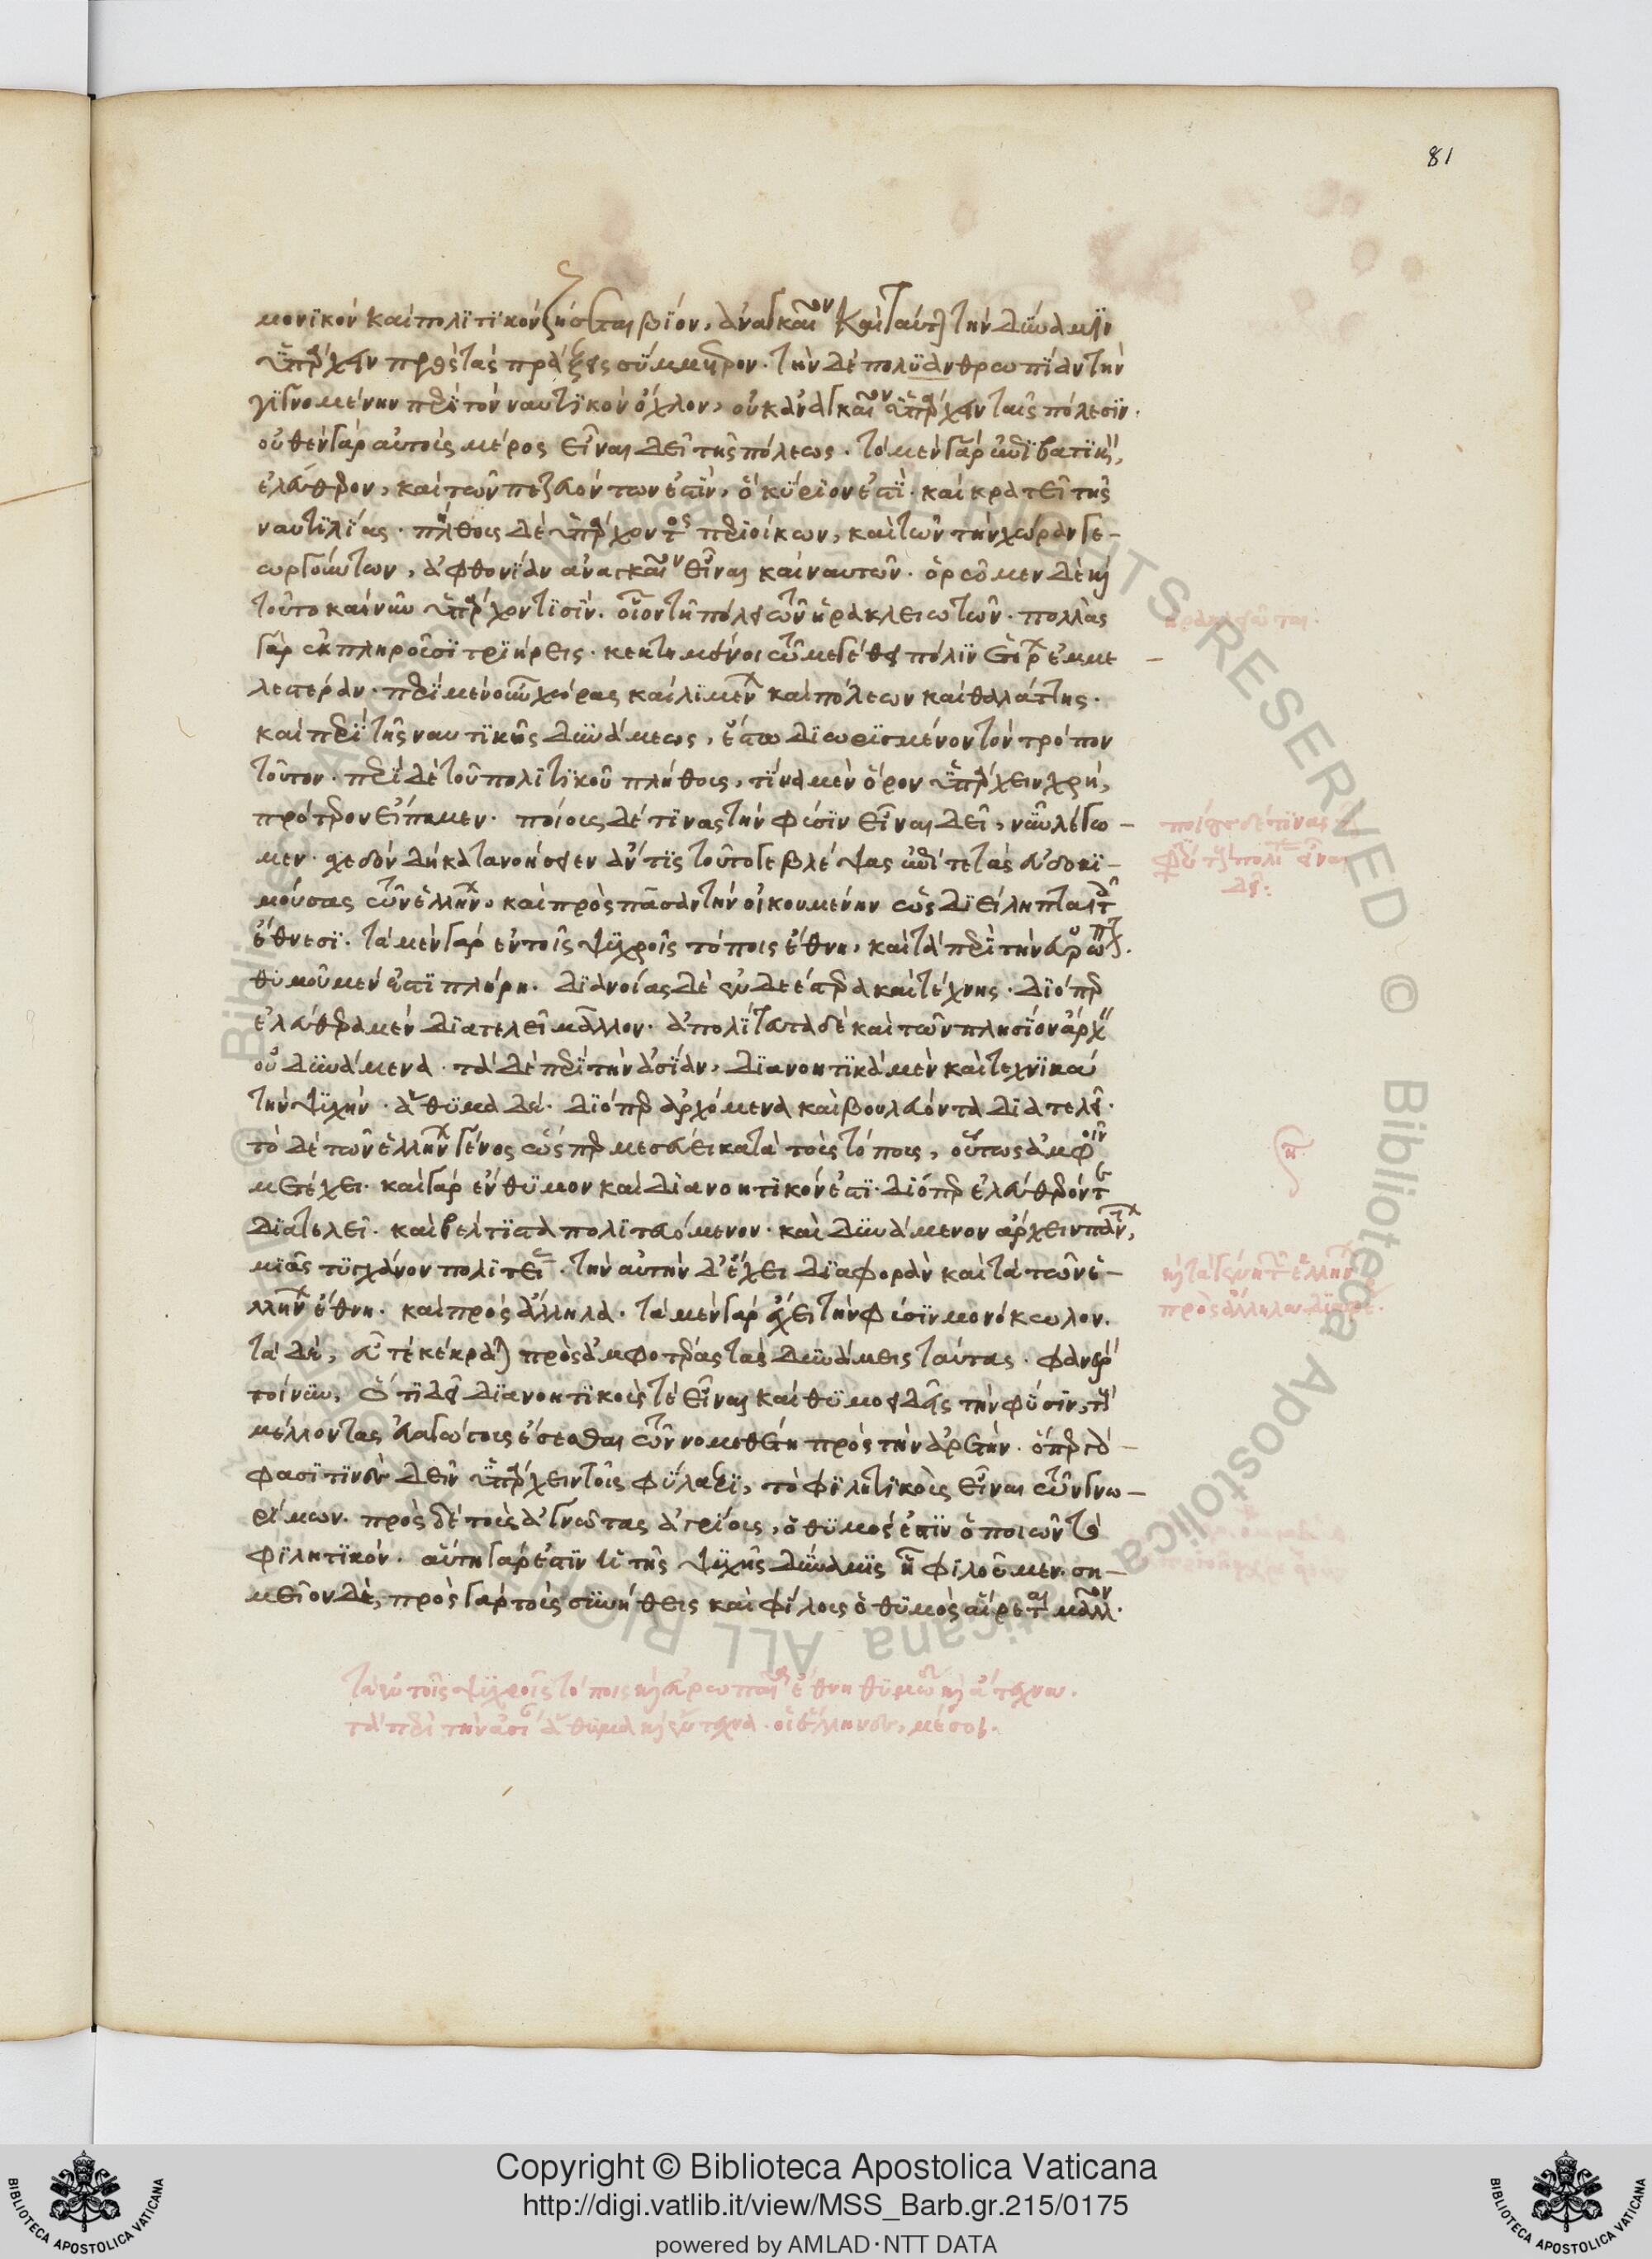 81
μονικὸν καὶ πολιτικὸν ζήσεται βίον, ἀναγκαῖον καὶ ταύτην τὴν δύναμιν
ὑπάρχειν πρὸς τὰς πράξεις σύμμετρον. τὴν δὲ πολυανθρωπίαν τὴν
γιγνομένην περὶ τὸν ναυτικὸν ὄχλον, οὐκ ἀναγκαῖον ὑπάρχειν ταῖς πόλεσιν.
οὐθὲν γὰρ αὐτοὺς μέρος εἶναι δεῖ τῆς πόλεως. τὸ μὲν γὰρ ἐπιβατικὸν,
ἐλεύθερον, καὶ τῶν πεζευόντων ἐστὶν, ὃ κύριόν ἐστι. καὶ κρατεῖ τῆς
ναυτιλίας. πλήθους δὲ ὑπάρχοντος περιοίκων, καὶ τῶν τὴν χώραν γε-
ωργούντων, ἀφθονίαν ἀναγκαῖον εἶναι καὶ ναυτῶν. ὁρῶμεν δὲ καὶ
τοῦτο καὶ νῦν ὑπάρχον τισίν. οἷον τῇ πόλει τῶν ἡρακλειωτῶν. πολλὰς
γὰρ ἐκπληροῦσι τριήρεις. κεκτημένοι τῷ μεγέθει πόλιν ἑτέρων ἐμμε-
λεστέραν. περὶ μὲν οὖν χώρας καὶ λιμένων καὶ πόλεων καὶ θαλάττης.
καὶ περὶ τῆς ναυτικῆς δυνάμεως, ἔστω διωρισμένον τὸν τρόπον
τοῦτον. περὶ δὲ τοῦ πολιτικοῦ πλήθους, τίνα μὲν ὅρον ὑπάρχειν χρή,
πρότερον εἴπομεν. ποίους δέ τινας τὴν φύσιν εἶναι δεῖ, νῦν λέγω-
μεν. σχεδὸν δὴ κατανοήσειεν ἄν τις τοῦτό γε βλέψας ἐπί τε τὰς εὐδοκι-
μούσας τῶν ἑλλήνων, καὶ πρὸς πᾶσαν τὴν οἰκουμένην ὡς διείληπται τοῖς
ἔθνεσι. τὰ μὲν γὰρ ἐν τοῖς ψυχροῖς τόποις ἔθνη, καὶ τὰ περὶ τὴν εὐρώπην.
θυμοῦ μέν ἐστι πλήρη. διανοίας δὲ ἐνδεέστερα καὶ τέχνης. διόπερ
ἐλεύθερα μὲν διατελεῖ μᾶλλον. ἀπολίτευτα δὲ καὶ τῶν πλησίον ἄρχειν
οὐ δυνάμενα. τὰ δὲ περὶ τὴν ἀσίαν, διανοητικὰ μὲν καὶ τεχνικὰ
τὴν ψυχήν. ἄθυμα δέ. διόπερ ἀρχόμενα καὶ δουλεύοντα διατελεῖ.
τὸ δὲ τῶν ἑλλήνων γένος ὥσπερ μεσεύει κατὰ τοὺς τόπους, οὕτως ἀμφοῖν
μετέχει. καὶ γὰρ ἔνθυμον καὶ διανοητικόν ἐστι. διόπερ ἐλεύθερόν τε
διατελεῖ. καὶ βέλτιστα πολιτευόμενον. καὶ δυνάμενον ἄρχειν πάντων,
μιᾶς τυγχάνον πολιτείας. τὴν αὐτὴν δ' ἔχει διαφορὰν καὶ τὰ τῶν ἑ-
λλήνων ἔθνη. καὶ πρὸς ἄλληλα. τὰ μὲν γὰρ ἔχει τὴν φύσιν μονόκωλον.
τὰ δὲ, εὖ τε κέκραται πρὸς ἀμφοτέρας τὰς δυνάμεις ταύτας. φανερὸν
τοίνυν, ὅτι δεῖ διανοητικούς τε εἶναι καὶ θυμοειδεῖς τὴν φύσιν, τοὺς
μέλλοντας εὐαγώγους ἔσεσθαι τῷ νομοθέτῃ πρὸς τὴν ἀρετήν. ὅπερ γάρ
φασί τινες δεῖν ὑπάρχειν τοῖς φύλαξι, τὸ φιλητικοὺς εἶναι τῶν γνω-
ρίμων. πρὸς δὲ τοὺς ἀγνῶτας ἀγρίους, ὁ θυμός ἐστιν ὁ ποιῶν τὸ
φιλητικόν. αὕτη γάρ ἐστιν ἡ τῆς ψυχῆς δύναμις ᾗ φιλοῦμεν. ση-
μεῖον δὲ, πρὸς γὰρ τοὺς συνήθεις καὶ φίλους ὁ θυμὸς αἴρεται μᾶλλον.
ἡρακλεῶται.
ποίους δέ τινας
φύσιν τοὺς πολίτας εἶναι
δεῖ:
καὶ τὰ γένη τῶν ἑλλήνων
πρὸς ἄλληλα διαφέρει.
τὰ ἐν τοῖς ψυχροῖς τόποις καὶ εὐρωπαῖα ἔθνη θυμώδη καὶ ἄτεχνα.
τὰ περὶ τὴν ἀσίαν ἄθυμα καὶ ἔντεχνα. οἱ ἕλληνες, μέσοι.
© Biblioteca Apostolica Vaticana ALL RIGHTS RESERVED
Copyright © Biblioteca Apostolica Vaticana
http://digi.vatlib.it/view/MSS_Barb.gr.215/0175
powered by AMLAD·NTT DATA
BIBLIOTECA APOSTOLICA VATICANA
BIBLIOTECA APOSTOLICA VATICANA